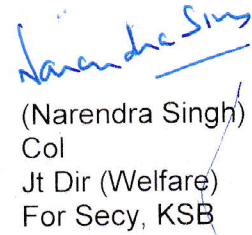 Narendra Sing
(Narendra Singh)
Col
Jt Dir (Welfare)
For Secy, KSB